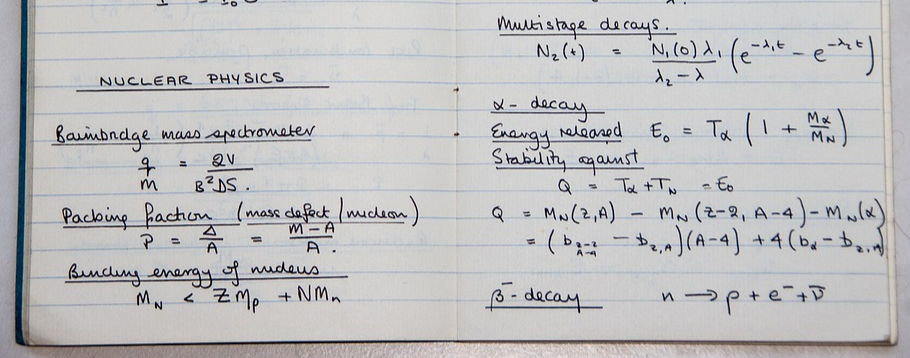 NUCLEAR PHYSICS
Bainbridge mass spectrometer
q/m = 2V / B²DS.
Packing fraction (mass defect / nucleon)
P = Δ/A = M-A / A.
Binding energy of nucleus
M_N < Z M_p + N M_n
Multistage decays.
N₂(t) = N₁(0) λ₁ / λ₂ - λ (e^-λ₁t - e^-λ₂t)
α - decay
Energy released E₀ = T_α (1 + M_α/M_N)
Stability against
Q = T_α + T_N = E₀
Q = M_N(Z,A) - M_N(Z-2, A-4) - M_N(α)
= (b_Z-2,A-4 - b_Z,A)(A-4) + 4(b_α - b_Z,A)
β⁻-decay n → p + e⁻ + ν̄